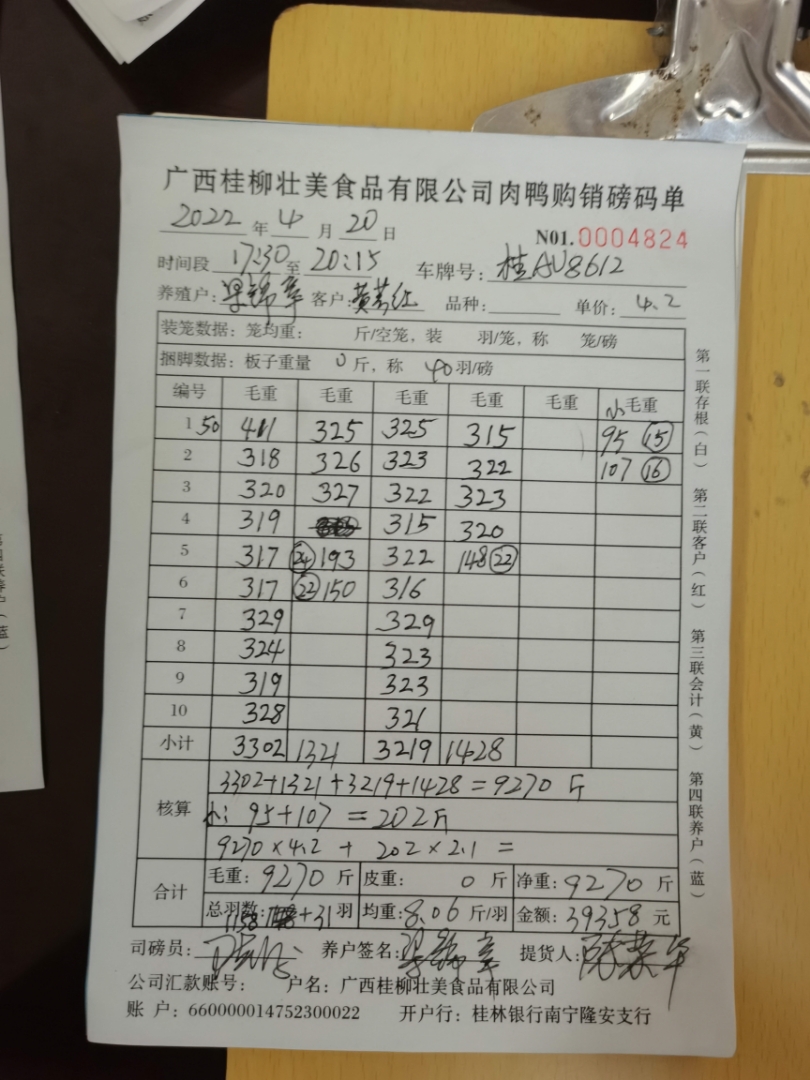 广西桂柳壮美食品有限公司肉鸭购销磅码单
2022 年 4 月 20 日
N01.0004824
时间段 17:30 至 20:15 车牌号: 桂AU8612
养殖户: 梁锦章 客户: 黄若红 品种: 单价: 4.2
装笼数据: 笼均重: 斤/空笼, 装 羽/笼, 称 笼/磅
捆脚数据: 板子重量 0 斤, 称 40 羽/磅
编号 毛重 毛重 毛重 毛重 毛重 小毛重
1 50 411 325 325 315 95 15
2 318 326 323 322 107 16
3 320 327 322 323
4 319 315 320
5 317 24 193 322 148 22
6 317 22 150 316
7 329 329
8 324 323
9 319 323
10 328 321
小计 3302 1321 3219 1428
核算
3302+1321+3219+1428=9270 斤
小: 95+107=202斤
9270×4.2 + 202×2.1 =
合计
毛重: 9270 斤 皮重: 0 斤 净重: 9270 斤
总羽数: 1158 +31 羽 均重: 8.06 斤/羽 金额: 39358 元
司磅员: 养户签名: 梁锦章 提货人:
公司汇款账号: 户名: 广西桂柳壮美食品有限公司
账 户: 660000014752300022 开户行: 桂林银行南宁隆安支行
第一联存根(白)
第二联客户(红)
第三联会计(黄)
第四联养户(蓝)